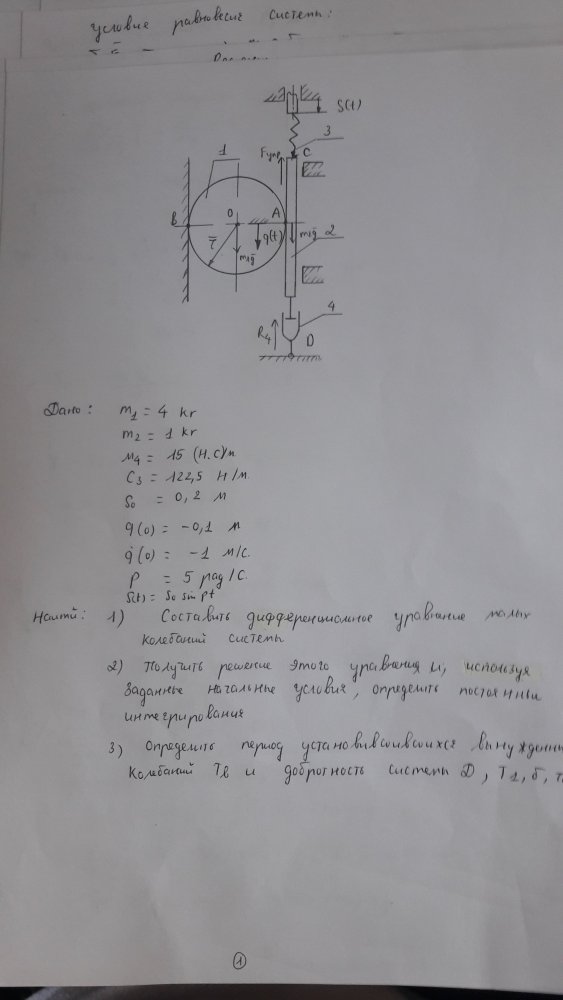 условие равновесия системы:
S(t)
3
Fупр
C
1
B
O
A
q(t)
m₂g̅
2
r̅
m₁g̅
4
R₄
D
Дано: m₁ = 4 кг
m₂ = 1 кг
μ₄ = 15 (Н.с)/м
C₃ = 122,5 Н/м
S₀ = 0,2 м
q(0) = -0,1 м
q̇(0) = -1 м/с.
p = 5 рад/с.
S(t) = S₀ sin pt
Найти: 1) Составить дифференциальное уравнение малых
колебаний системы
2) Получить решение этого уравнения и, используя
заданные начальные условия, определить постоянные
интегрирования
3) Определить период установившихся вынужден
колебаний Tв и добротность системы D, T₁, δ,
1